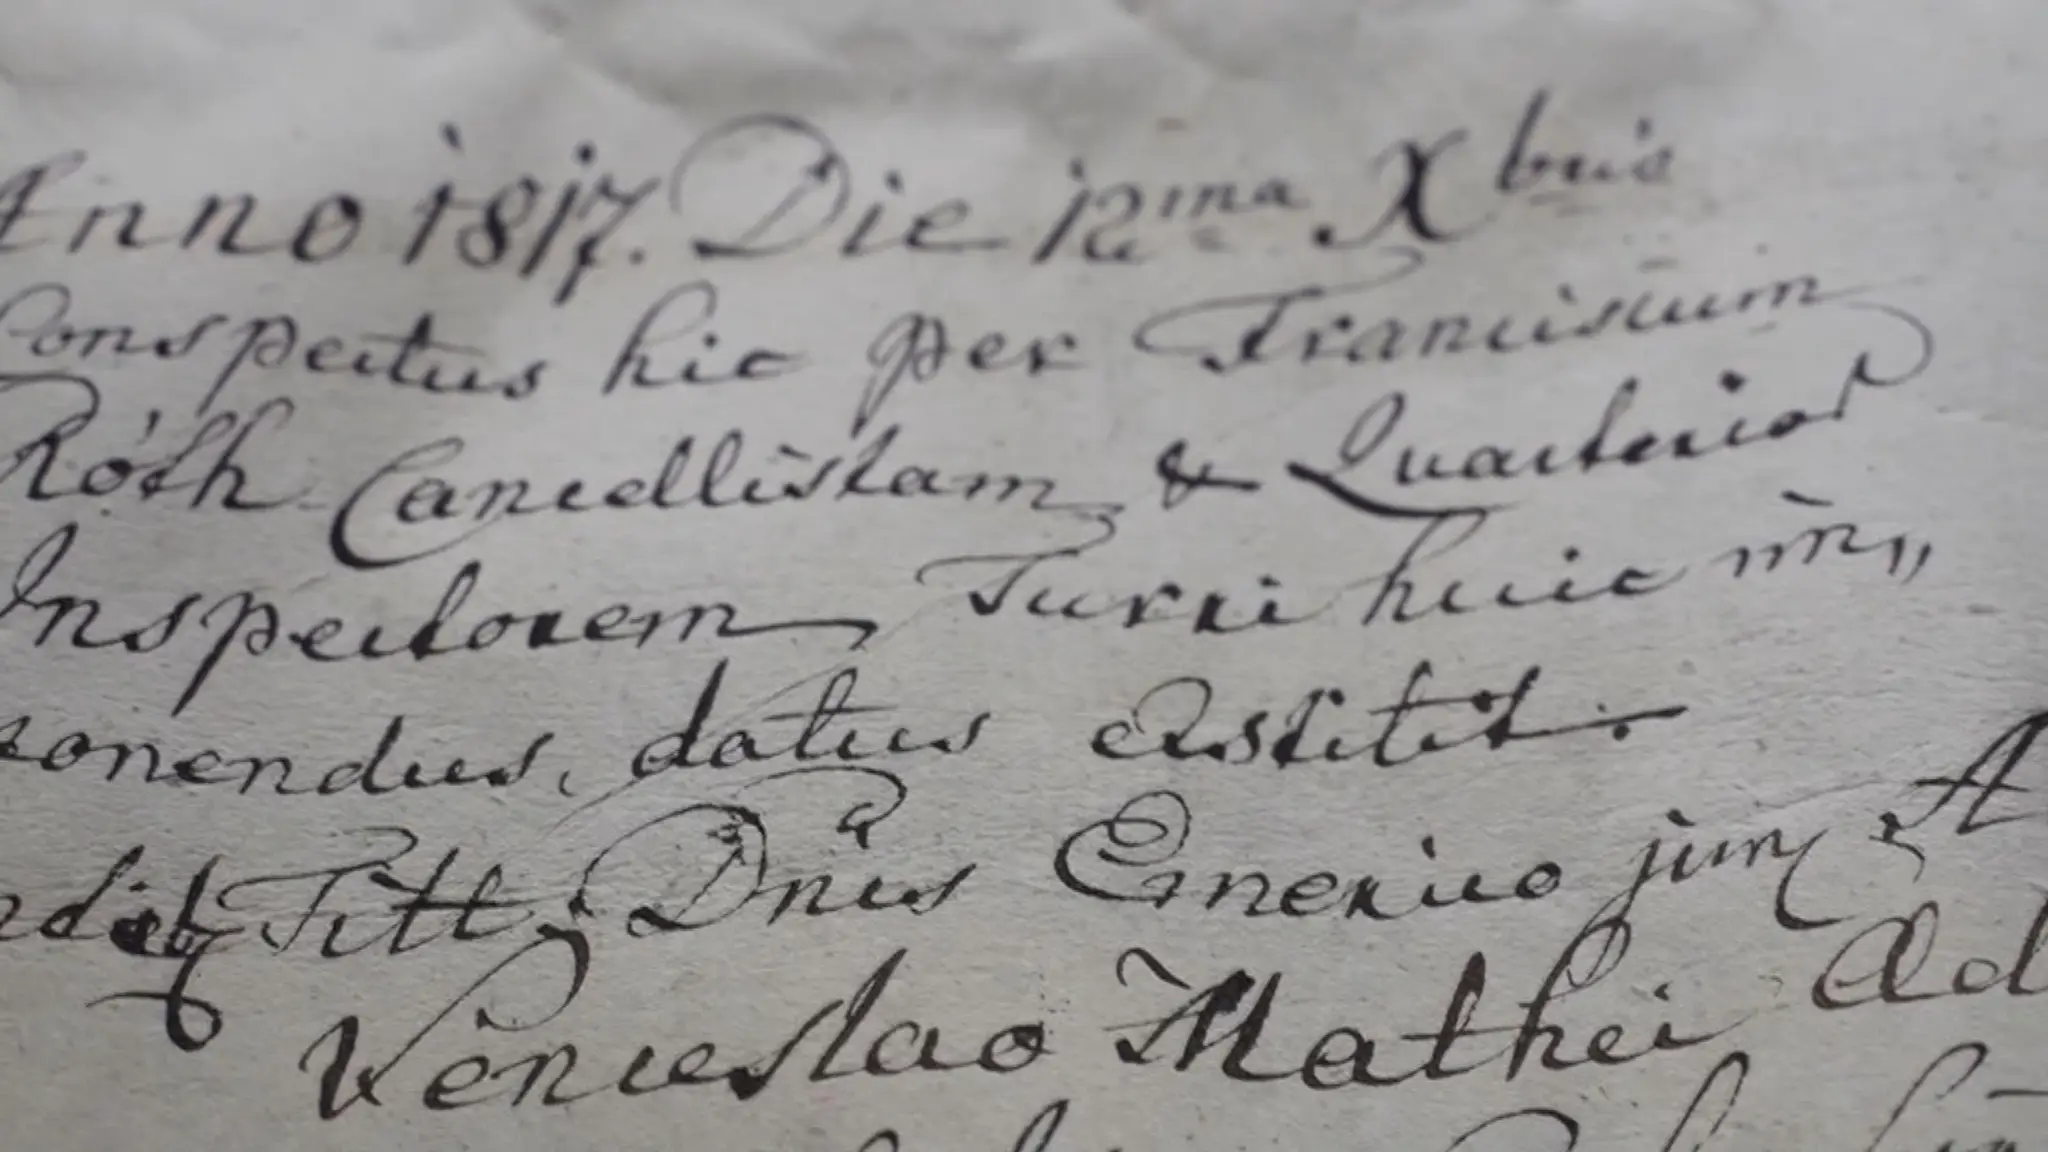 Anno 1817. Die 12ma Xbris
Conspectus hic per Franciscum
Róth Cancellistam & Quartirior
Inspectorem Turri huic im„
ponendus, datus exstitit.
Titt. Dnis Emerico jun
Venceslao Mathei Ad